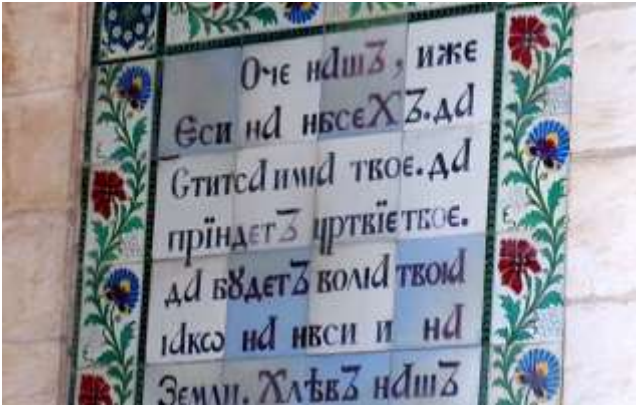 Оче нашъ, иже
Єси на нбсєхъ. да
Ститса имıа твоє. да
прїидєтъ цртвїє твоє.
да бꙋдєтъ волıа твоıа
ıакѡ на нбси и на
Земли. Хлѣбъ нашъ